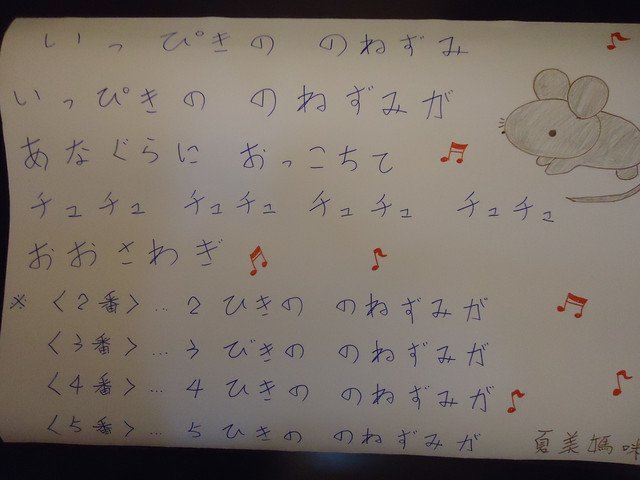 いっぴきの のねずみ
いっぴきの のねずみが
あなぐらに おっこちて
チュチュ チュチュ チュチュ チュチュ
おおさわぎ
※ 〈2番〉… 2 ひきの のねずみが
〈3番〉… 3 びきの のねずみが
〈4番〉… 4 ひきの のねずみが
〈5番〉… 5 ひきの のねずみが
夏美媽咪